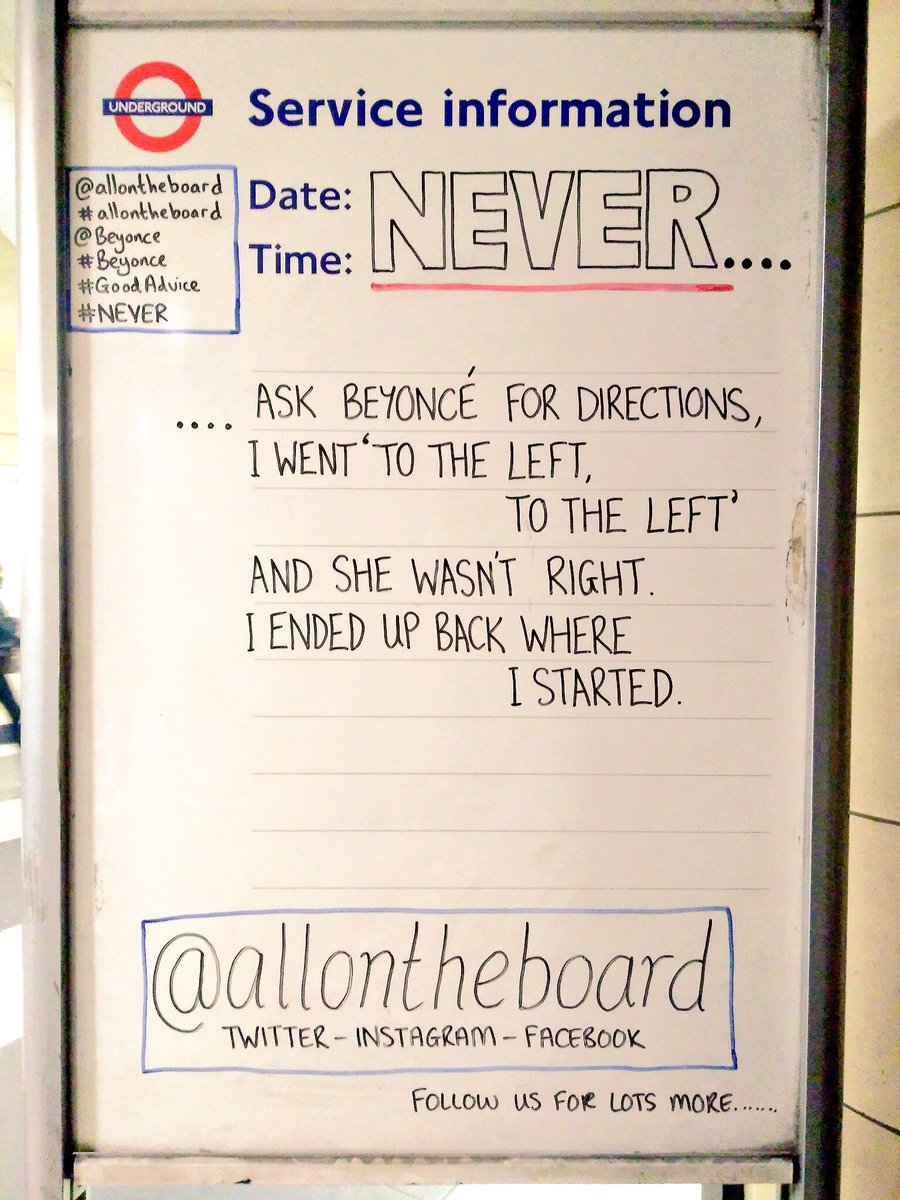 UNDERGROUND
Service information
@allontheboard
#allontheboard
@Beyonce
#Beyonce
#GoodAdvice
#NEVER
Date:
Time:
NEVER....
.... ASK BEYONCÉ FOR DIRECTIONS,
I WENT 'TO THE LEFT,
TO THE LEFT'
AND SHE WASN'T RIGHT.
I ENDED UP BACK WHERE
I STARTED.
@allontheboard
TWITTER - INSTAGRAM - FACEBOOK
FOLLOW US FOR LOTS MORE.......